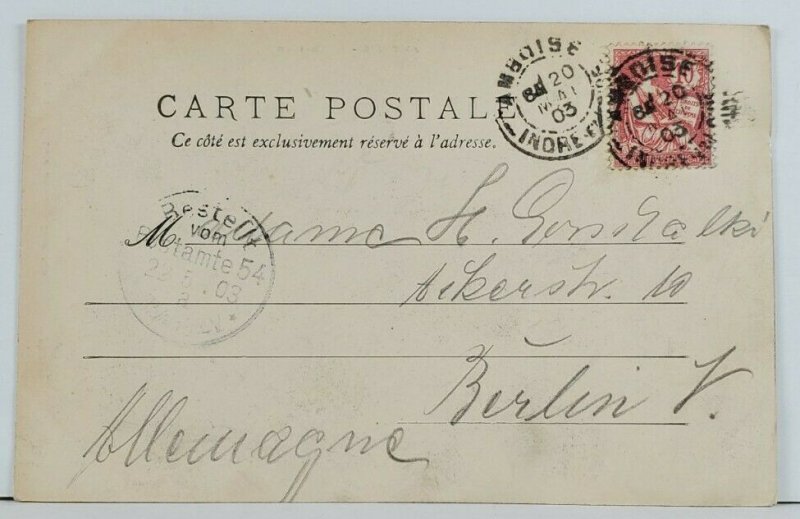 CARTE POSTALE
Ce côté est exclusivement réservé à l'adresse.
AMBOISE
20
MAI
03
INDRE
AMBOISE
20
03
Bestellt
vom
Postamte 54
5. 03
Madame H.
Ackerstr. 10
Berlin
Allemagne